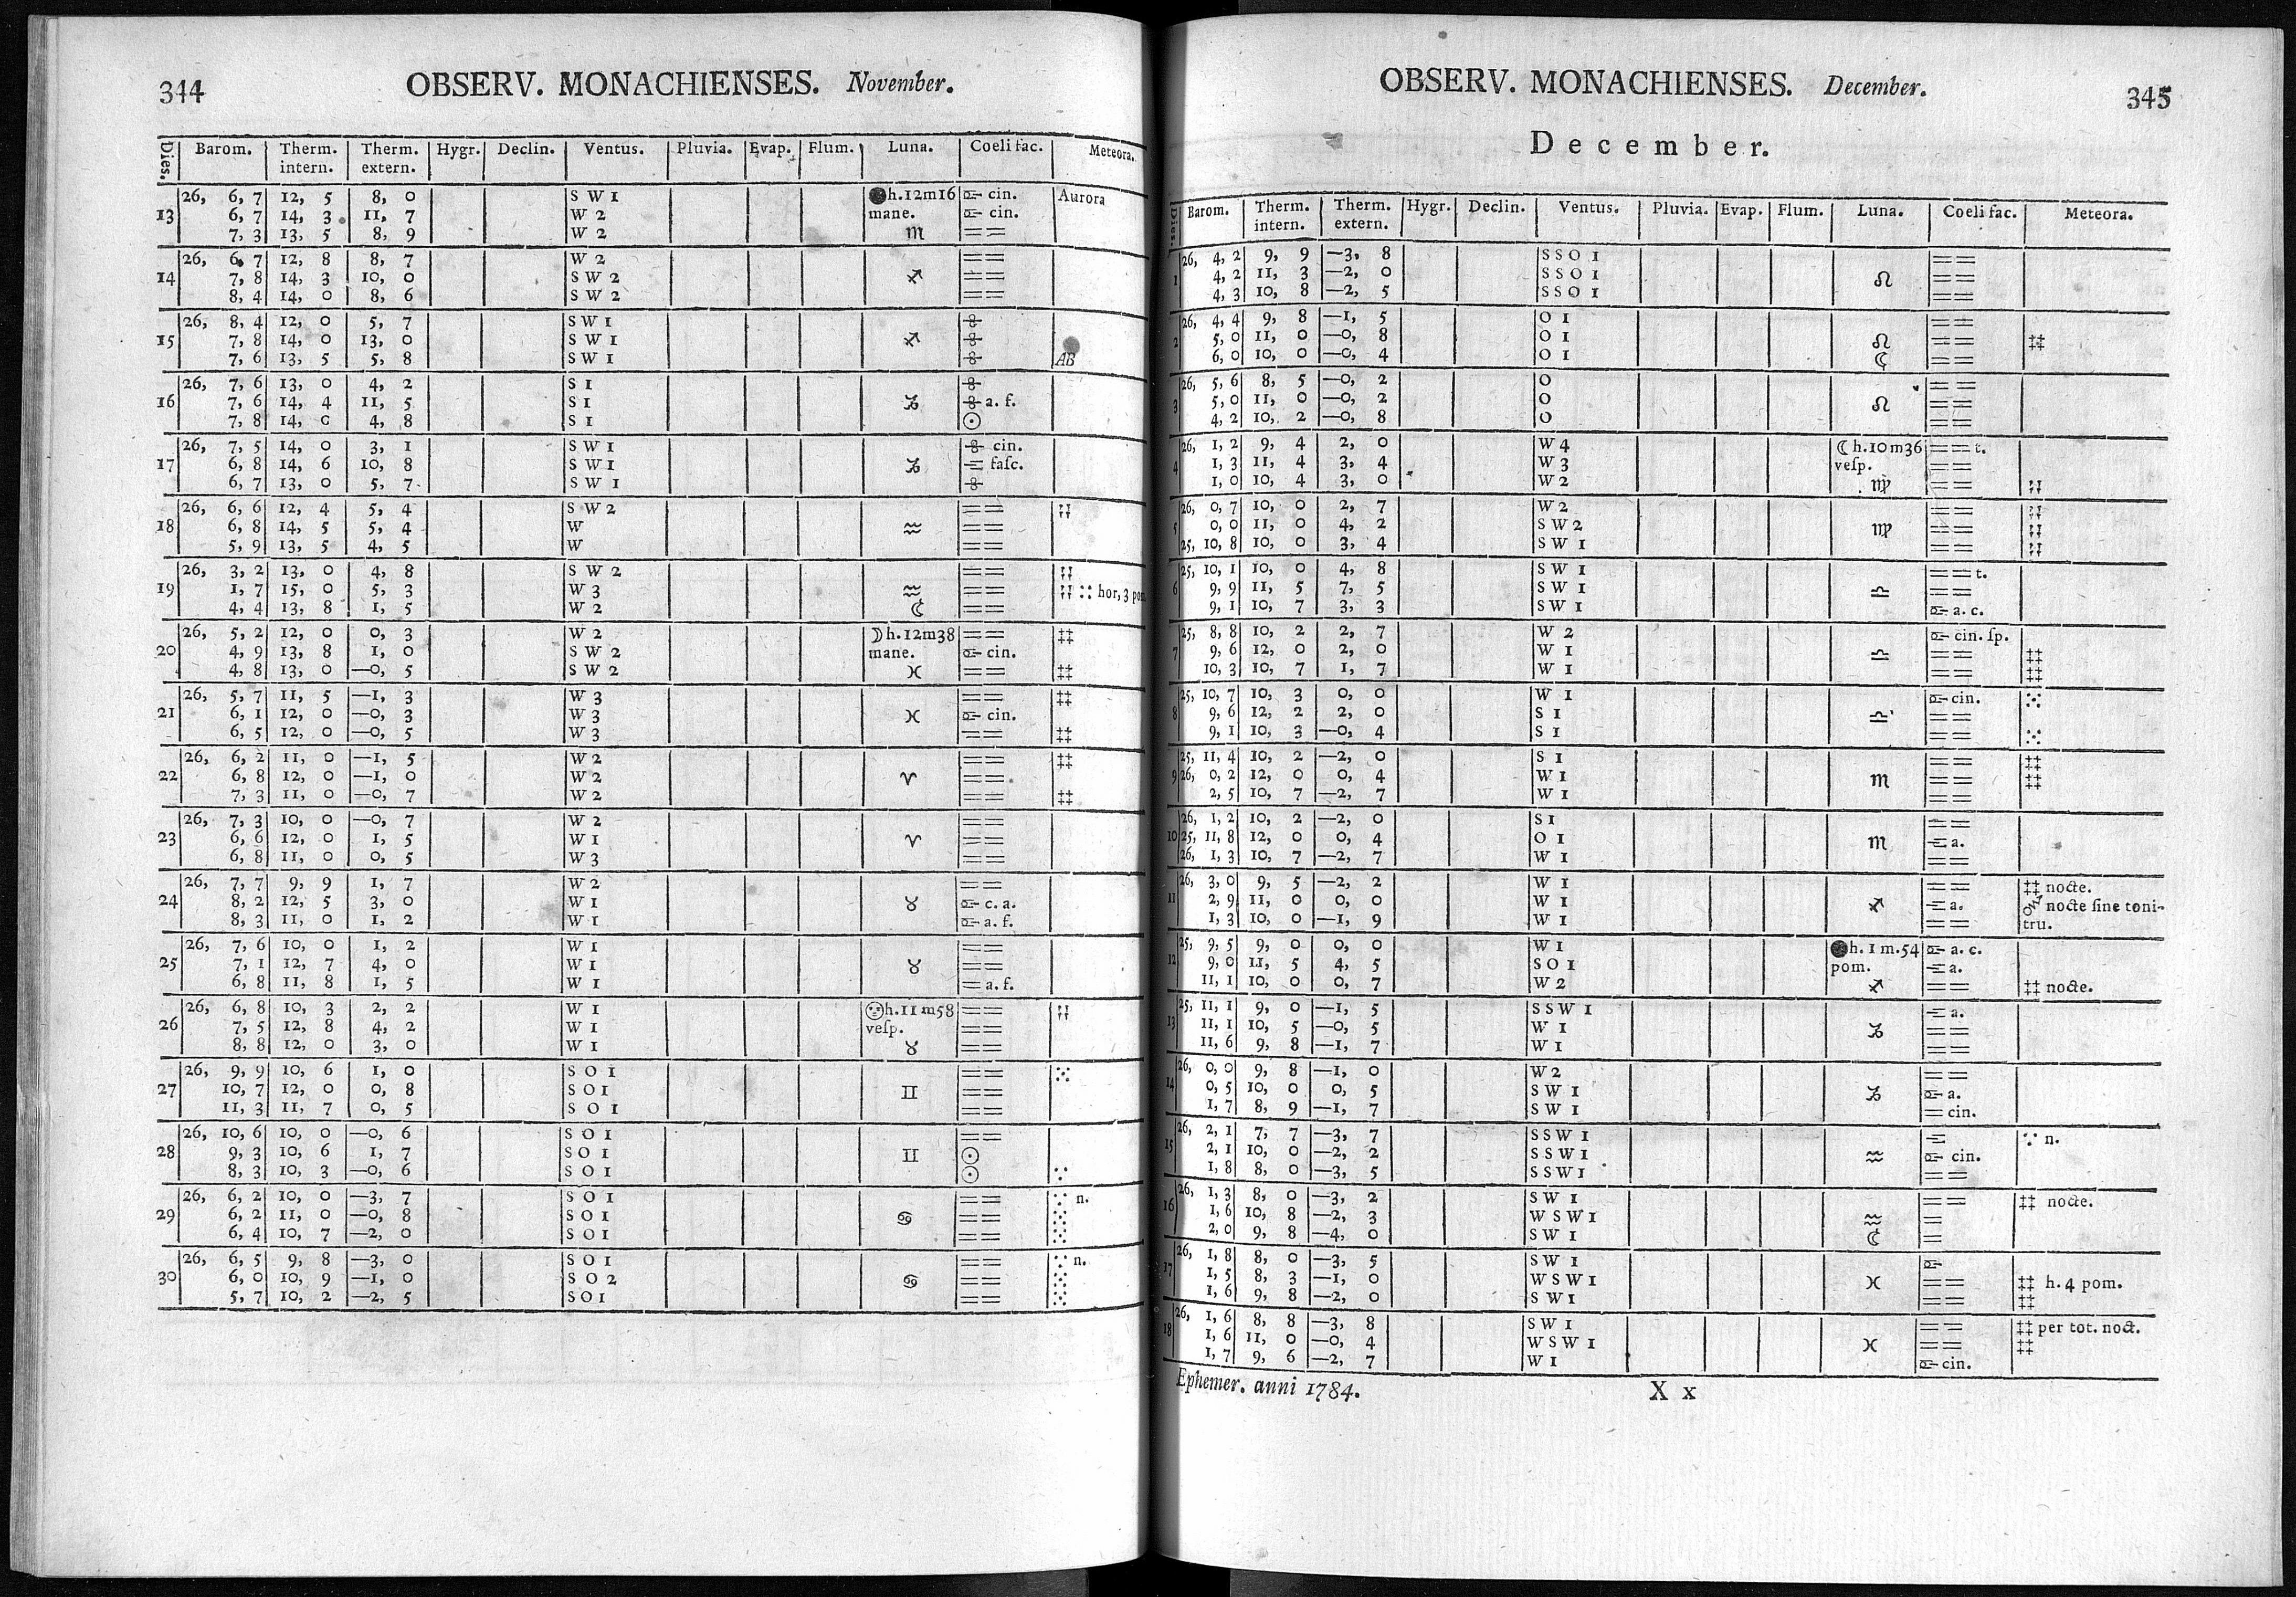 344 OBSERV. MONACHIENSES. November.
Dies. Barom. Therm. intern. Therm. extern. Hygr. Declin. Ventus. Pluvia. Evap. Flum. Luna. Coeli fac. Meteora.
26, 6, 7 12, 5 8, 0 S W 1 ●h.12m16 cin. Aurora
13 6, 7 14, 3 11, 7 W 2 mane. cin.
7, 3 13, 5 8, 9 W 2 ♏ ==
26, 6, 7 12, 8 8, 7 W 2 ==
14 7, 8 14, 3 10, 0 S W 2 ♐ ==
8, 4 14, 0 8, 6 S W 2 ==
26, 8, 4 12, 0 5, 7 S W 1
15 7, 8 14, 0 13, 0 S W 1 ♐
7, 6 13, 5 5, 8 S W 1 AB
26, 7, 6 13, 0 4, 2 S 1
16 7, 6 14, 4 11, 5 S 1 ♑ a. f.
7, 8 14, 0 4, 8 S 1 ☉
26, 7, 5 14, 0 3, 1 S W 1 cin.
17 6, 8 14, 6 10, 8 S W 1 ♑ = fasc.
6, 7 13, 0 5, 7 S W 1
26, 6, 6 12, 4 5, 4 S W 2 ==
18 6, 8 14, 5 5, 4 W ♒ ==
5, 9 13, 5 4, 5 W ==
26, 3, 2 13, 0 4, 8 S W 2 ==
19 1, 7 15, 0 5, 3 W 3 ♒ == :: hor, 3 pom
4, 4 13, 8 1, 5 W 2 ☾ ==
26, 5, 2 12, 0 0, 3 W 2 ☽h.12m38 == ‡‡
20 4, 9 13, 8 1, 0 S W 2 mane. cin.
4, 8 13, 0 —0, 5 S W 2 ♓ == ‡‡
26, 5, 7 11, 5 —1, 3 W 3 == ‡‡
21 6, 1 12, 0 —0, 3 W 3 ♓ cin.
6, 5 12, 0 —0, 5 W 3 == ‡‡
26, 6, 2 11, 0 —1, 5 W 2 == ‡‡
22 6, 8 12, 0 —1, 0 W 2 ♈ ==
7, 3 11, 0 —0, 7 W 2 == ‡‡
26, 7, 3 10, 0 —0, 7 W 2 ==
23 6, 6 12, 0 1, 5 W 1 ♈ ==
6, 8 11, 0 0, 5 W 3 ==
26, 7, 7 9, 9 1, 7 W 2 ==
24 8, 2 12, 5 3, 0 W 1 ♉ c. a.
8, 3 11, 0 1, 2 W 1 a. f.
26, 7, 6 10, 0 1, 2 W 1 ==
25 7, 1 12, 7 4, 0 W 1 ♉ ==
6, 8 11, 8 1, 5 W 1 = a. f.
26, 6, 8 10, 3 2, 2 W 1 h.11m58 ==
26 7, 5 12, 8 4, 2 W 1 vesp. ==
8, 8 12, 0 3, 0 W 1 ♉ ==
26, 9, 9 10, 6 1, 0 S O 1 ==
27 10, 7 12, 0 0, 8 S O 1 ♊ ==
11, 3 11, 7 0, 5 S O 1 ==
26, 10, 6 10, 0 —0, 6 S O 1 ==
28 9, 3 10, 6 1, 7 S O 1 ♊ ☉
8, 3 10, 3 —0, 6 S O 1 ☉
26, 6, 2 10, 0 —3, 7 S O 1 == n.
29 6, 2 11, 0 —0, 8 S O 1 ♋ ==
6, 4 10, 7 —2, 0 S O 1 ==
26, 6, 5 9, 8 —3, 0 S O 1 == n.
30 6, 0 10, 9 —1, 0 S O 2 ♋ ==
5, 7 10, 2 —2, 5 S O 1 ==
OBSERV. MONACHIENSES. December. 345
December.
Dies. Barom. Therm. intern. Therm. extern. Hygr. Declin. Ventus. Pluvia. Evap. Flum. Luna. Coeli fac. Meteora.
26, 4, 2 9, 9 —3, 8 S S O 1 ==
1 4, 2 11, 3 —2, 0 S S O 1 ♌ ==
4, 3 10, 8 —2, 5 S S O 1 ==
26, 4, 4 9, 8 —1, 5 O 1 ==
2 5, 0 11, 0 —0, 8 O 1 ♌ == ‡‡
6, 0 10, 0 —0, 4 O 1 ☾ ==
26, 5, 6 8, 5 —0, 2 O ==
3 5, 0 11, 0 —0, 2 O ♌ ==
4, 2 10, 2 —0, 8 O ==
26, 1, 2 9, 4 2, 0 W 4 ☾h.10m36 == t.
4 1, 3 11, 4 3, 4 W 3 vesp. ==
1, 0 10, 4 3, 0 W 2 ♍ ==
26, 0, 7 10, 0 2, 7 W 2 ==
5 0, 0 11, 0 4, 2 S W 2 ♍ ==
25, 10, 8 10, 0 3, 4 S W 1 ==
25, 10, 1 10, 0 4, 8 S W 1 == t.
6 9, 9 11, 5 7, 5 S W 1 ♎ ==
9, 1 10, 7 3, 3 S W 1 a. c.
25, 8, 8 10, 2 2, 7 W 2 cin. sp.
7 9, 6 12, 0 2, 0 W 1 ♎ == ‡‡
10, 3 10, 7 1, 7 W 1 == ‡‡
25, 10, 7 10, 3 0, 0 W 1 cin.
8 9, 6 12, 2 2, 0 S 1 ♎ ==
9, 1 10, 3 —0, 4 S 1 ==
25, 11, 4 10, 2 —2, 0 S 1 == ‡‡
9 26, 0, 2 12, 0 0, 4 W 1 ♏ == ‡‡
2, 5 10, 7 —2, 7 W 1 ==
26, 1, 2 10, 2 —2, 0 S 1 ==
10 25, 11, 8 12, 0 0, 4 O 1 ♏ a.
26, 1, 3 10, 7 —2, 7 W 1 ==
26, 3, 0 9, 5 —2, 2 W 1 == ‡‡ nocte.
11 2, 9 11, 0 0, 0 W 1 ♐ a. nocte sine toni-
1, 3 10, 0 —1, 9 W 1 == tru.
25, 9, 5 9, 0 0, 0 W 1 ●h. 1 m.54 a. c.
12 9, 0 11, 5 4, 5 S O 1 pom. a.
11, 1 10, 0 0, 7 W 2 ♐ == ‡‡ nocte.
25, 11, 1 9, 0 —1, 5 S S W 1 a.
13 11, 1 10, 5 —0, 5 W 1 ♑ ==
11, 6 9, 8 —1, 7 W 1 ==
26, 0, 0 9, 8 —1, 0 W 2 ==
14 0, 5 10, 0 0, 5 S W 1 ♑ a.
1, 7 8, 9 —1, 7 S W 1 = cin.
26, 2, 1 7, 7 —3, 7 S S W 1 n.
15 2, 1 10, 0 —2, 2 S S W 1 ♒ cin.
1, 8 8, 0 —3, 5 S S W 1 ==
26, 1, 3 8, 0 —3, 2 S W 1 == ‡‡ nocte.
16 1, 6 10, 8 —2, 3 W S W 1 ♒ =
2, 0 9, 8 —4, 0 S W 1 ☾ =
26, 1, 8 8, 0 —3, 5 S W 1
17 1, 5 8, 3 —1, 0 W S W 1 ♓ == ‡‡ h. 4 pom.
1, 6 9, 8 —2, 0 S W 1 == ‡‡
26, 1, 6 8, 8 —3, 8 S W 1 == ‡‡ per tot. noct.
18 1, 6 11, 0 —0, 4 W S W 1 ♓ == ‡‡
1, 7 9, 6 —2, 7 W 1 cin.
Ephemer. anni 1784. X x